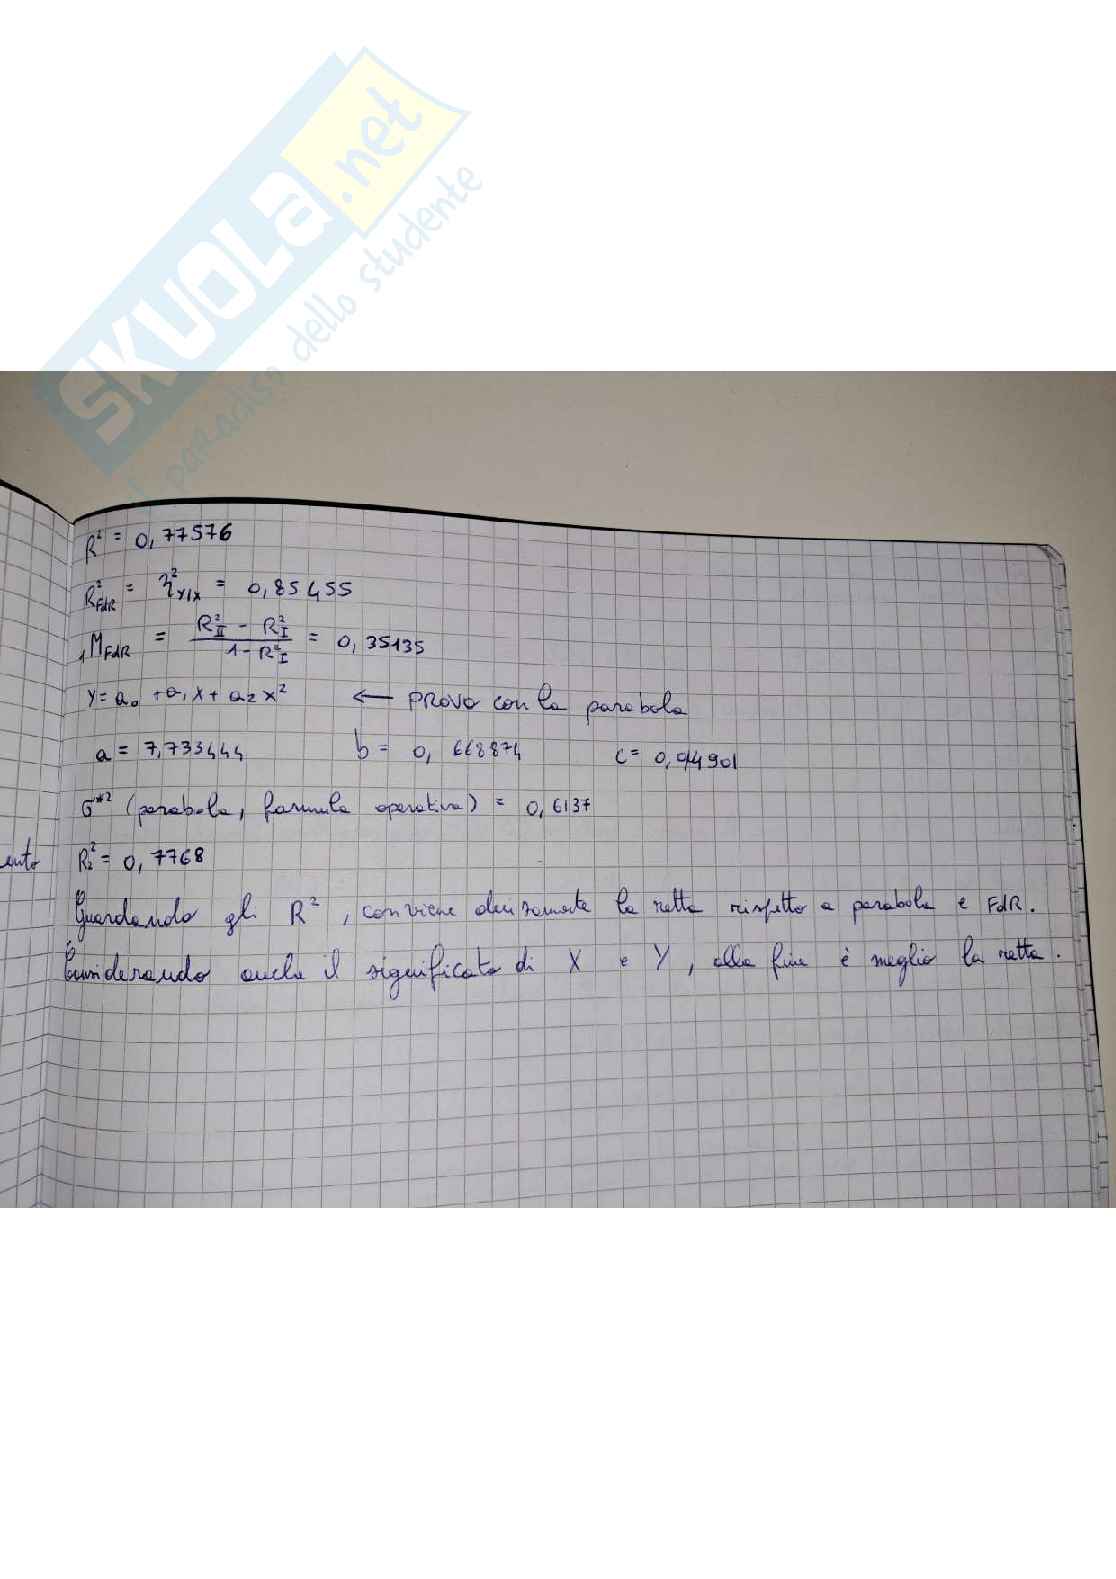 SKUOLA.net
paradiso dello studente
R² = 0,77576
R²FdR = η²Y|X = 0,85455
₁MFdR = R²II - R²I / 1 - R²I = 0,35135
Y = a₀ + a₁x + a₂x² ← PROVO con la parabola
a = 7,733444 b = 0,668874 c =
G*² (parabola, formula operativa) = 0,6137
ento R₂² = 0,7768
Guardando gli R², conviene decisamente la retta rispetto a parabola e FdR.
Considerando anche il significato di X e Y, alla fine è meglio la retta.